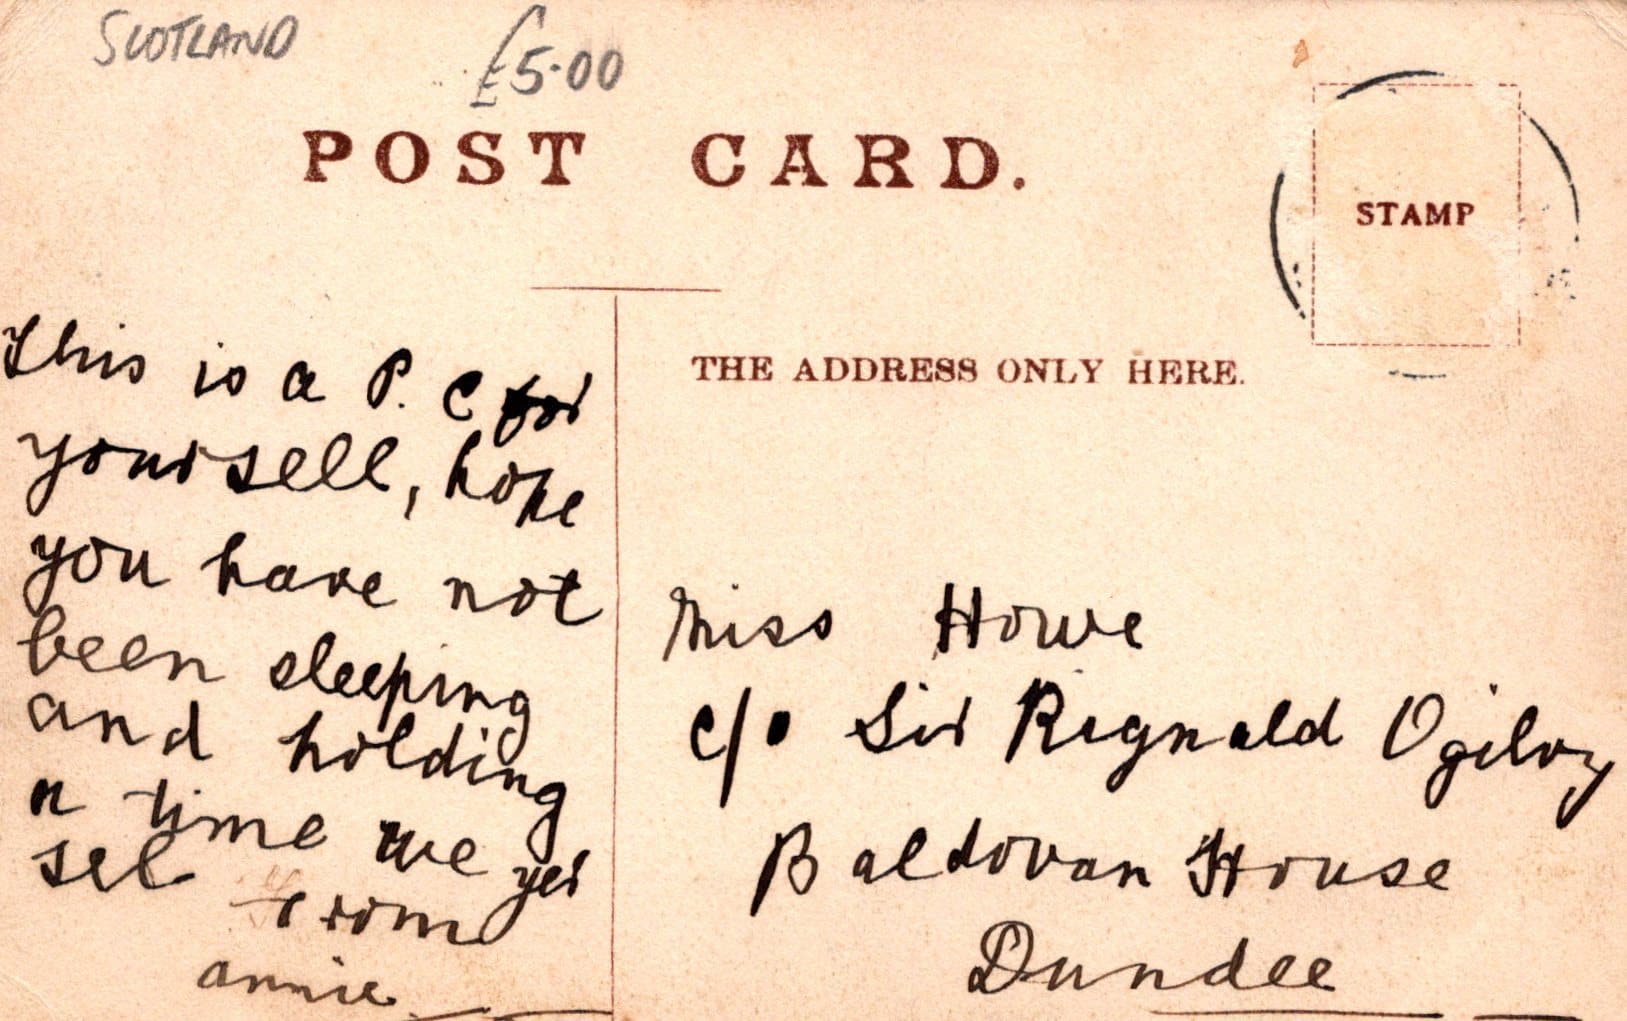 SCOTLAND
£5.00
POST CARD.
STAMP
THE ADDRESS ONLY HERE.
This is a P. C for
yoursell, hope
you have not
been sleeping
and holding
a time we yer
sel
From
annie
Miss Howe
c/o Sir Rignald Ogilvy
Baldovan House
Dundee